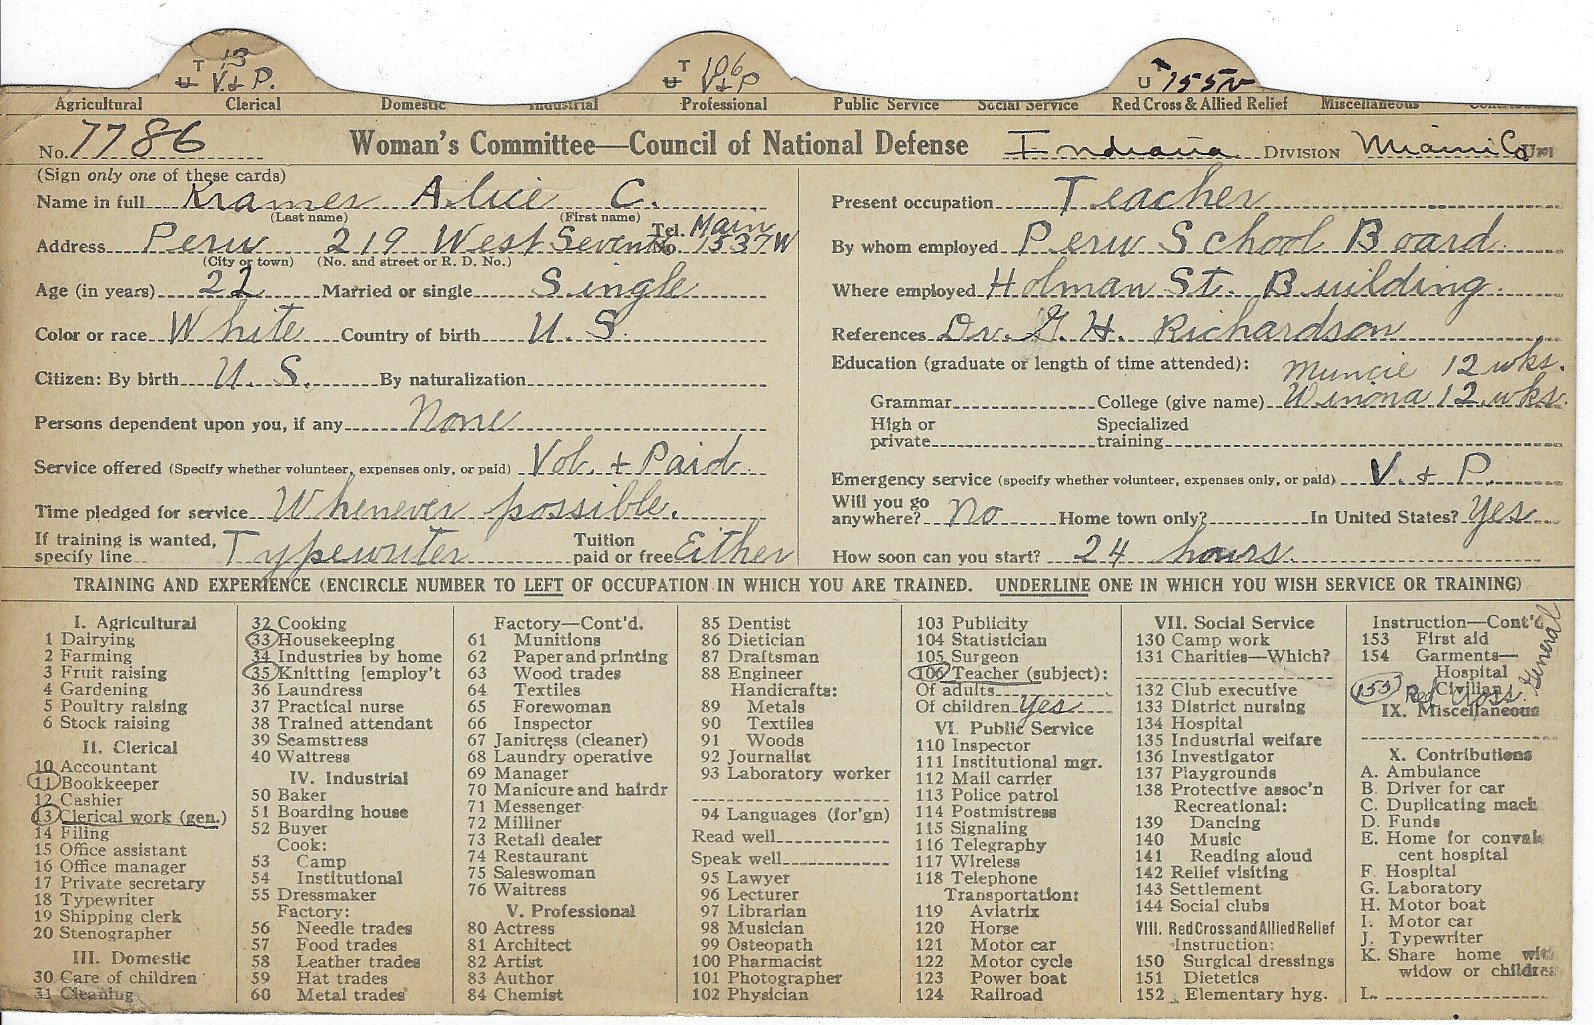 T 13 T 106 U 155 V
U V. & P. U V & P
Agricultural Clerical Domestic Industrial Professional Public Service Social Service Red Cross & Allied Relief Miscellaneous
No. 7786 Woman's Committee—Council of National Defense Indiana DIVISION Miami Co
(Sign only one of these cards)
Name in full Kramer Alice C.
(Last name) (First name)
Address Peru 219 West Seventh Tel. No. Main 1537W
(City or town) (No. and street or R. D. No.)
Age (in years) 22 Married or single Single
Color or race White Country of birth U. S.
Citizen: By birth U. S. By naturalization
Persons dependent upon you, if any None
Service offered (Specify whether volunteer, expenses only, or paid) Vol. + Paid
Time pledged for service Whenever possible.
If training is wanted, Tuition
specify line Typewriter paid or free Either
Present occupation Teacher
By whom employed Peru School Board
Where employed Holman St. Building.
References Dr. G. H. Richardson
Education (graduate or length of time attended): Muncie 12 wks.
Grammar College (give name) Winona 12 wks.
High or Specialized
private training
Emergency service (specify whether volunteer, expenses only, or paid) V. + P.
Will you go
anywhere? No Home town only? In United States? Yes
How soon can you start? 24 hours.
TRAINING AND EXPERIENCE (ENCIRCLE NUMBER TO LEFT OF OCCUPATION IN WHICH YOU ARE TRAINED. UNDERLINE ONE IN WHICH YOU WISH SERVICE OR TRAINING)
I. Agricultural
1 Dairying
2 Farming
3 Fruit raising
4 Gardening
5 Poultry raising
6 Stock raising
II. Clerical
10 Accountant
11 Bookkeeper
12 Cashier
13 Clerical work (gen.)
14 Filing
15 Office assistant
16 Office manager
17 Private secretary
18 Typewriter
19 Shipping clerk
20 Stenographer
III. Domestic
30 Care of children
31 Cleaning
32 Cooking
33 Housekeeping
34 Industries by home
35 Knitting [employ't
36 Laundress
37 Practical nurse
38 Trained attendant
39 Seamstress
40 Waitress
IV. Industrial
50 Baker
51 Boarding house
52 Buyer
Cook:
53 Camp
54 Institutional
55 Dressmaker
Factory:
56 Needle trades
57 Food trades
58 Leather trades
59 Hat trades
60 Metal trades
Factory—Cont'd.
61 Munitions
62 Paper and printing
63 Wood trades
64 Textiles
65 Forewoman
66 Inspector
67 Janitress (cleaner)
68 Laundry operative
69 Manager
70 Manicure and hairdr
71 Messenger
72 Milliner
73 Retail dealer
74 Restaurant
75 Saleswoman
76 Waitress
V. Professional
80 Actress
81 Architect
82 Artist
83 Author
84 Chemist
85 Dentist
86 Dietician
87 Draftsman
88 Engineer
Handicrafts:
89 Metals
90 Textiles
91 Woods
92 Journalist
93 Laboratory worker
94 Languages (for'gn)
Read well
Speak well
95 Lawyer
96 Lecturer
97 Librarian
98 Musician
99 Osteopath
100 Pharmacist
101 Photographer
102 Physician
103 Publicity
104 Statistician
105 Surgeon
106 Teacher (subject):
Of adults
Of children Yes
VI. Public Service
110 Inspector
111 Institutional mgr.
112 Mail carrier
113 Police patrol
114 Postmistress
115 Signaling
116 Telegraphy
117 Wireless
118 Telephone
Transportation:
119 Aviatrix
120 Horse
121 Motor car
122 Motor cycle
123 Power boat
124 Railroad
VII. Social Service
130 Camp work
131 Charities—Which?
132 Club executive
133 District nursing
134 Hospital
135 Industrial welfare
136 Investigator
137 Playgrounds
138 Protective assoc'n
Recreational:
139 Dancing
140 Music
141 Reading aloud
142 Relief visiting
143 Settlement
144 Social clubs
VIII. Red Cross and Allied Relief
Instruction:
150 Surgical dressings
151 Dietetics
152 Elementary hyg.
Instruction—Cont'd
153 First aid
154 Garments—
Hospital
Civilian
155 Red Cross General
IX. Miscellaneous
X. Contributions
A. Ambulance
B. Driver for car
C. Duplicating mach
D. Funds
E. Home for convales
cent hospital
F. Hospital
G. Laboratory
H. Motor boat
I. Motor car
J. Typewriter
K. Share home with
widow or children
L.